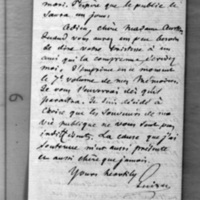 mari. J'espère que le public le
saura un jour.
Adieu, chère Madame Austin
Quand vous avez un peu besoin
de dire votre tristesse à un
ami qui la comprenne, écrivez
moi. J'imprime en ce moment
le 3e volume de mes Mémoires
Je vous l'enverrai dès qu'il
paraîtra. Je suis décidé à
croire que les Souvenirs de ma
vie publique ne vous sont pas
indifférents. La cause que j'ai
soutenue m'est aussi présente
et aussi chère que jamais.
Yours heartily
Guizot